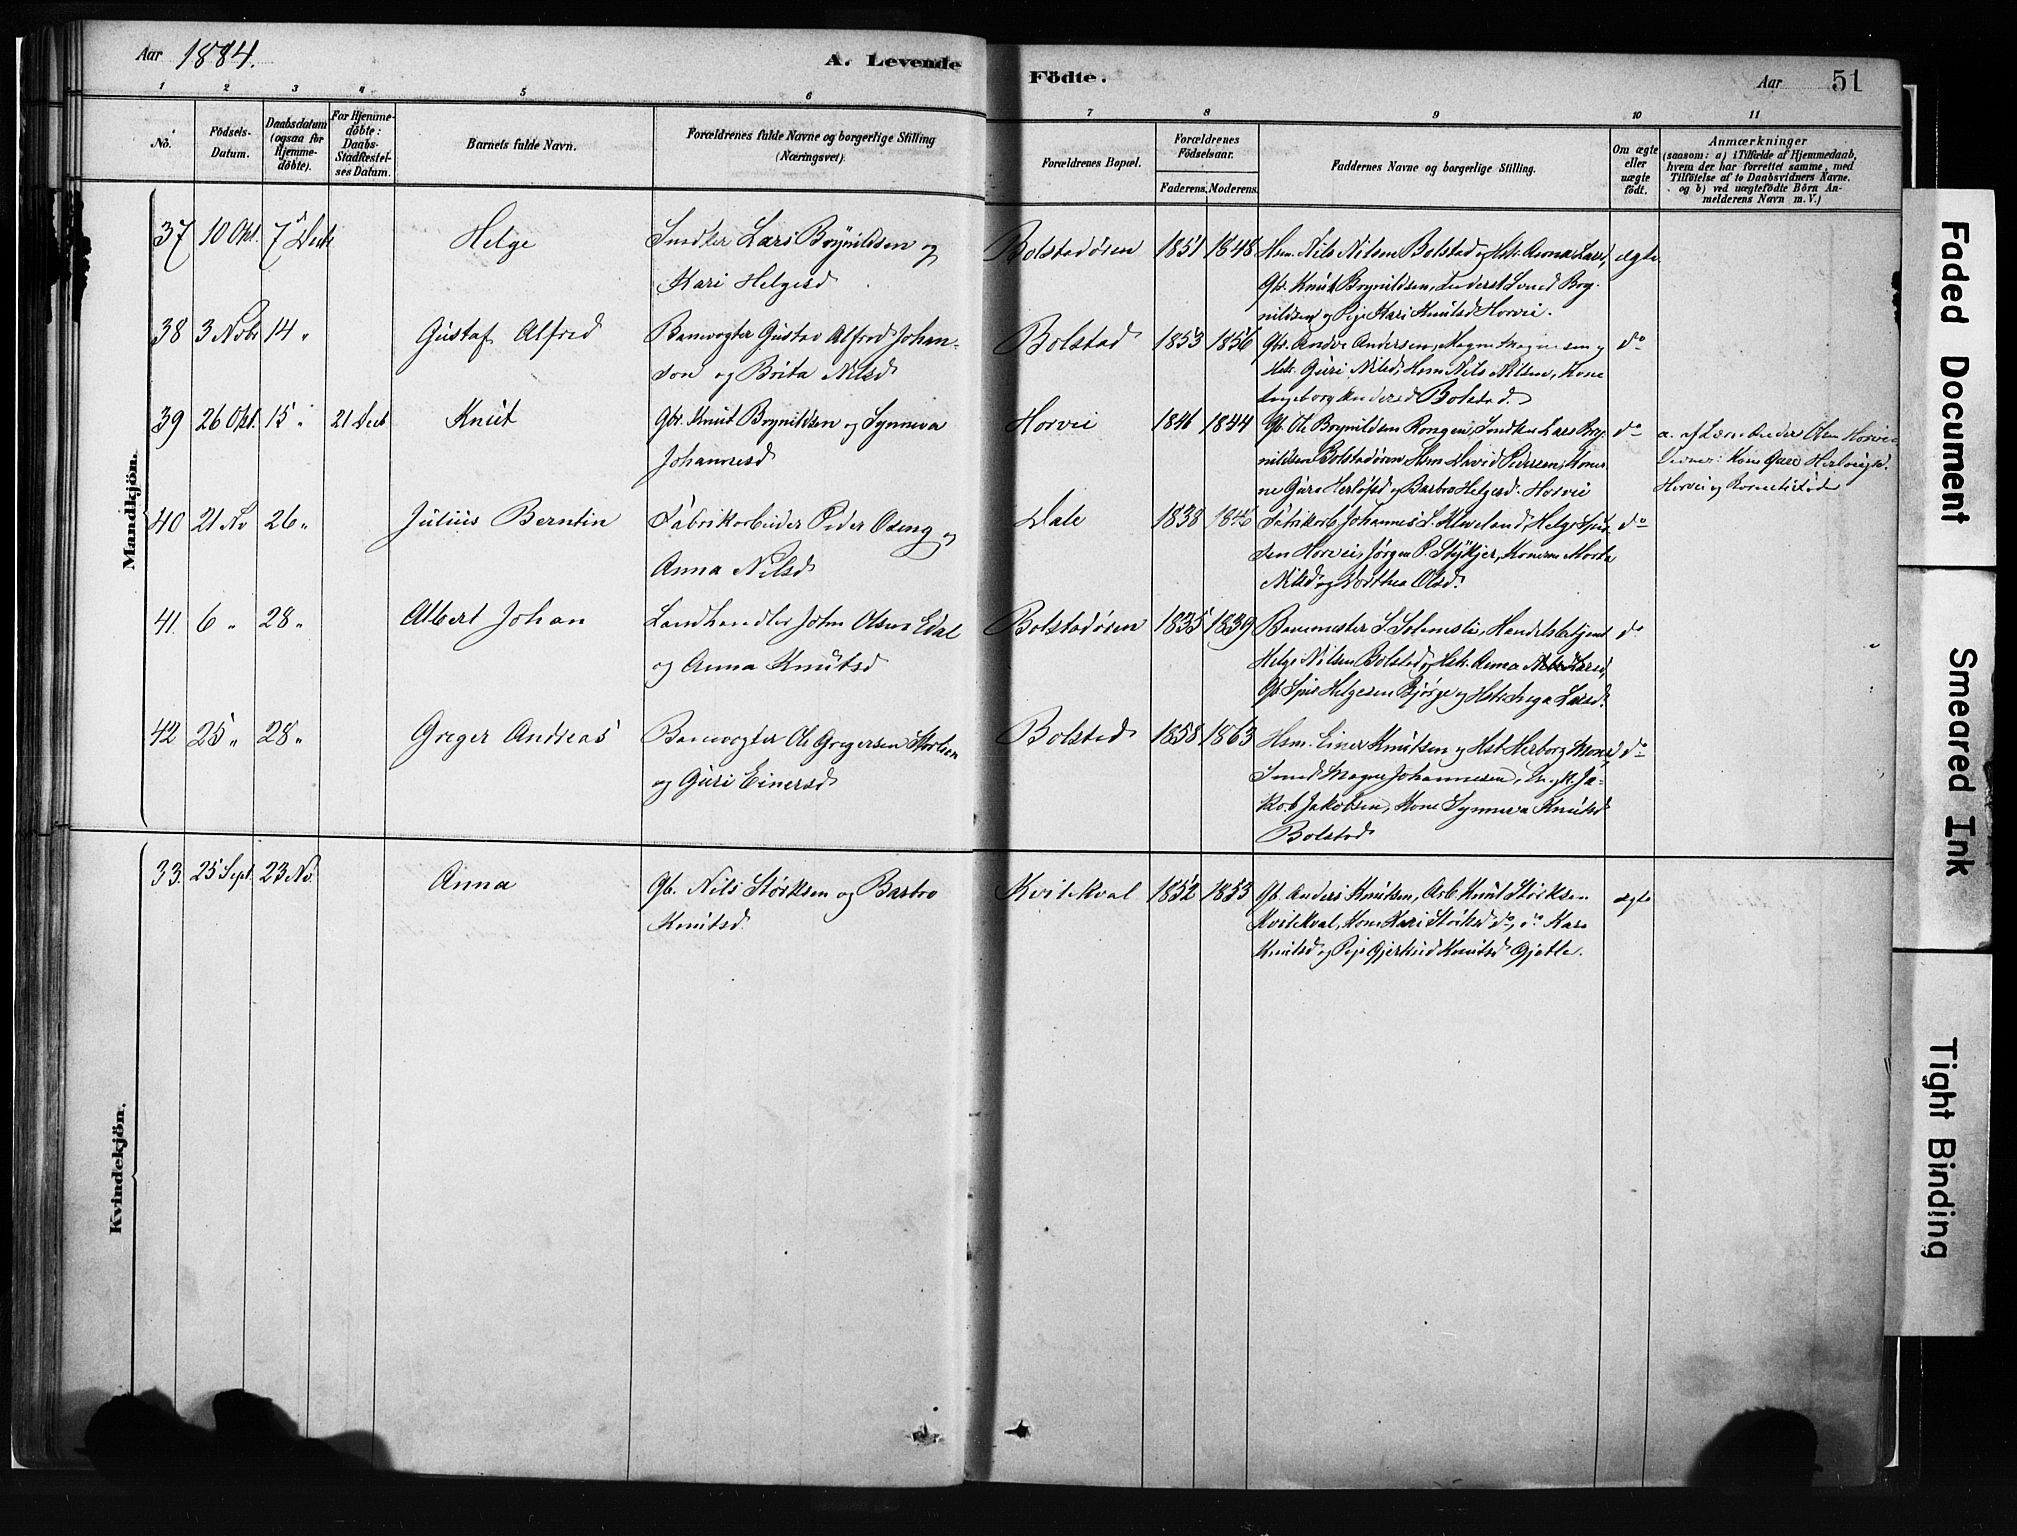 Aar 1884.
A. Levende
Födte.
Aar
51
1 2 3 4 5 6 7 8 9 10 11
No.
Födsels-
Datum.
Daabsdatum
(ogsaa for
Hjemme-
döbte).
For Hjemme-
döbte:
Daabs-
Stadfæstel-
ses Datum.
Barnets fulde Navn.
Forældrenes fulde Navne og borgerlige Stilling
(Næringsvei).
Forældrenes Bopæl.
Forældrenes
Födselsaar.
Faderens. Moderens.
Faddernes Navne og borgerlige Stilling.
Om ægte
eller
uægte
födt.
Anmærkninger
(saasom: a) i Tilfælde af Hjemmedaab,
hvem der har forrettet samme, med
Tilföielse af to Daabsvidners Navne.
og b) ved uægtefödte Börn An-
melderens Navn m. V.)
Mandkjön.
37 10 Okt. 7 Decb Helge
Snedker Lars Brynildsen og
Kari Helgesd
Bolstadøren 1851 1848
Hsm. Nils Nilsen Bolstad og Hstr. Anna Larsd,
Gbr. Knut Brynildsen, Bryn-
nildsen og Pige Kari Knutsd Horvei.
ægte
38 3 Novbr 14 " Gustaf Alfred
Banevogter Gustav Alfred Johan-
son og Brita Nilsd
Bolstad 1853 1856
Gbr. Andve Andersen, Magne Magnesen og
Hstr. Guri Nilsd, Hsm Nils Nilsen, Kone
Ingeborg Andersd Bolstad.
do
39 26 Okt. 15 " 21 Decb Knut
Gbr. Knut Brynildsen og Synneva
Johannesd
Horvei 1846 1844
Gb. Ole Brynildsen Rongen, Snedker Lars Bry-
nildsen Bolstadøren Hsm David Persen, Koner-
ne Guro Herlofsd og Barbro Helgesd Horvei
do
a. af Olsen Horvei
Vidner: Kone Guro
Horvei og
40 21 Nv 26 " Julius Berntin
Fabrikarbeider Peder Oseng og
Anna Nilsd
Dale 1838 1846
Fabrikarb. Johannes L. Helveland, Helge
sen Horvei, Jørgen P. Konerne Marta
Nilsd og Dorthea Olsd.
do
41. 6 " 28 " Albert Johan
Landhandler John Olsen Edal
og Anna Knutsd
Bolstadøren 1835 1839
Banemester S. Solemsli, Handelsbetjent
Helge Nilsen Bolstad og Hstr. Anna Larsd,
Gb. Helgesen Bjørge og Hstr. Inga Larsd.
do
42 25 " 28 " Greger Andreas
Banevogter Ole Gregersen
og Guri Einersd
Bolstad 1858 1863
Hsm. Einer Knutsen og Hst. Herborg Monsd,
Smed Magne Johannesen, Ja-
kob Jakobsen, Kone Synneva Knutsd
Bolstad
do
Kvindekjön.
33. 25 Sept. 23 Nv. Anna
Gb. Nils Størksen og Barbro
Knutsd.
Kvitekval 1852 1853
Gb. Anders Knutsen, Arb. Knut Størksen
Kvitekval, Kone Kari Størksd do, do Kari
Knutsd og Pige Gjertrud Knutsd Gjelle.
ægte
Faded Document
Smeared Ink
Tight Binding